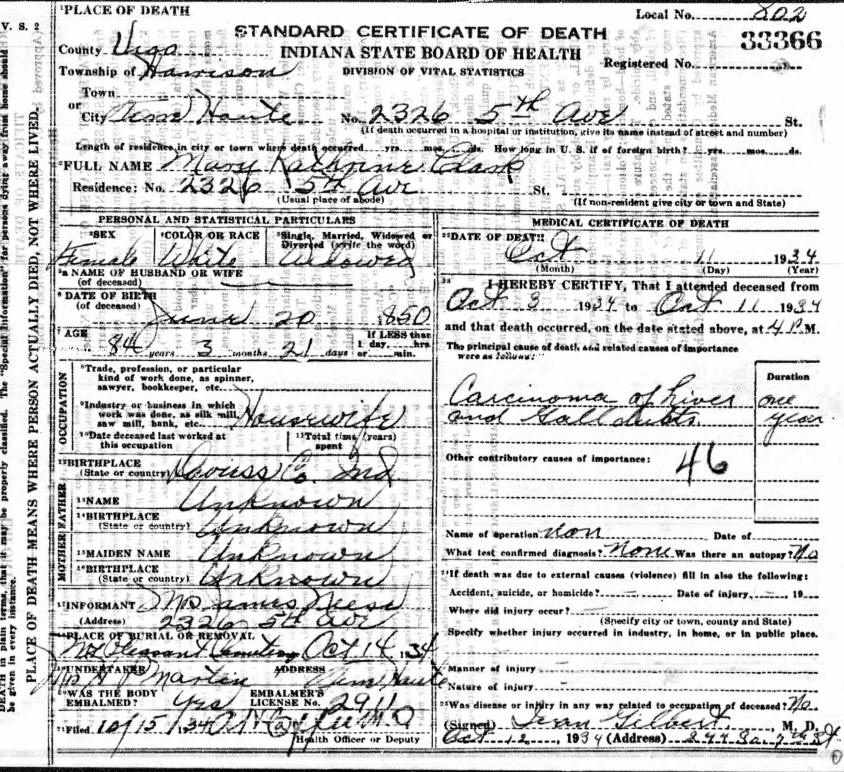 V. S. 2
¹PLACE OF DEATH
Local No. 802
STANDARD CERTIFICATE OF DEATH
33366
County Vigo
INDIANA STATE BOARD OF HEALTH
Registered No.
Township of Harrison
DIVISION OF VITAL STATISTICS
Town
or
City Terre Haute No. 2326 5th Ave St.
(If death occurred in a hospital or institution, give its name instead of street and number)
Length of residence in city or town where death occurred yrs. mos. ds. How long in U. S. if of foreign birth? yrs. mos. ds.
²FULL NAME Mary Kathrine Clark
Residence: No. 2326 5th Ave St.
(Usual place of abode)
(If non-resident give city or town and State)
PERSONAL AND STATISTICAL PARTICULARS
³SEX
⁴COLOR OR RACE
⁵Single, Married, Widowed or Divorced (write the word)
Female White Widowed
⁵a NAME OF HUSBAND OR WIFE
(of deceased)
⁶DATE OF BIRTH
(of deceased)
June 20 1850
⁷AGE
If LESS than
84 years 3 months 21 days
1 day, hrs.
or min.
OCCUPATION
⁸Trade, profession, or particular
kind of work done, as spinner,
sawyer, bookkeeper, etc.
⁹Industry or business in which
work was done, as silk mill,
saw mill, bank, etc. Housewife
¹⁰Date deceased last worked at
this occupation
¹¹Total time (years)
spent
¹²BIRTHPLACE
(State or country) Co. Ind
FATHER
¹³NAME Unknown
¹⁴BIRTHPLACE
(State or country) Unknown
MOTHER
¹⁵MAIDEN NAME Unknown
¹⁶BIRTHPLACE
(State or country) Unknown
¹⁷INFORMANT Mrs James Neese
(Address) 2326 5th Ave
¹⁸PLACE OF BURIAL OR REMOVAL
Mt Pleasant Cemetery Oct 14 1934
¹⁹UNDERTAKER
ADDRESS
Martin Terre Haute
²⁰WAS THE BODY
EMBALMED? Yes
EMBALMER'S
LICENSE No. 2911
²¹Filed 10/15 1934 M D
Health Officer or Deputy
MEDICAL CERTIFICATE OF DEATH
²²DATE OF DEATH: Oct 11 1934
(Month) (Day) (Year)
²³ I HEREBY CERTIFY, That I attended deceased from
Oct 3 1934 to Oct 11 1934
and that death occurred, on the date stated above, at 4 P.M.
The principal cause of death, and related causes of importance
were as follows:
Duration
Carcinoma of Liver
and Gall ducts
one
year
Other contributory causes of importance:
46
Name of operation non Date of
What test confirmed diagnosis? None Was there an autopsy? No
²⁴If death was due to external causes (violence) fill in also the following:
Accident, suicide, or homicide? Date of injury 19
Where did injury occur?
(Specify city or town, county and State)
Specify whether injury occurred in industry, in home, or in public place.
Manner of injury
Nature of injury
²⁵Was disease or injury in any way related to occupation of deceased? No.
(Signed) Gilbert, M. D.
Oct 12, 1934 (Address) So. 7th St
DEATH in plain terms, that it may be properly classified. The "Special Information" for persons dying away from home should
be given in every instance.
PLACE OF DEATH MEANS WHERE PERSON ACTUALLY DIED, NOT WHERE LIVED.